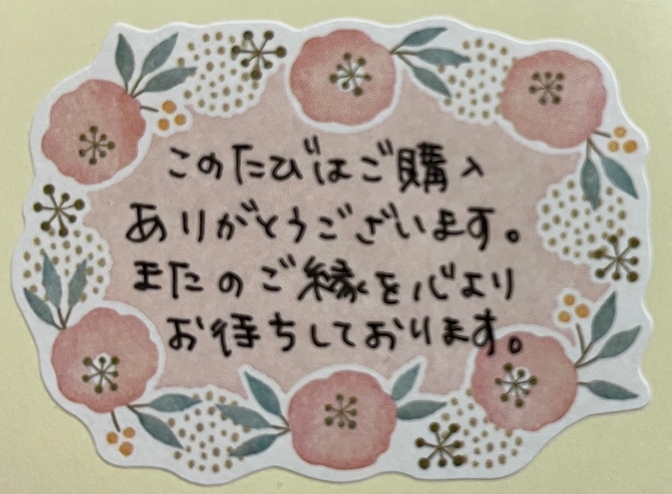 このたびはご購入
ありがとうございます。
またのご縁を心より
お待ちしております。